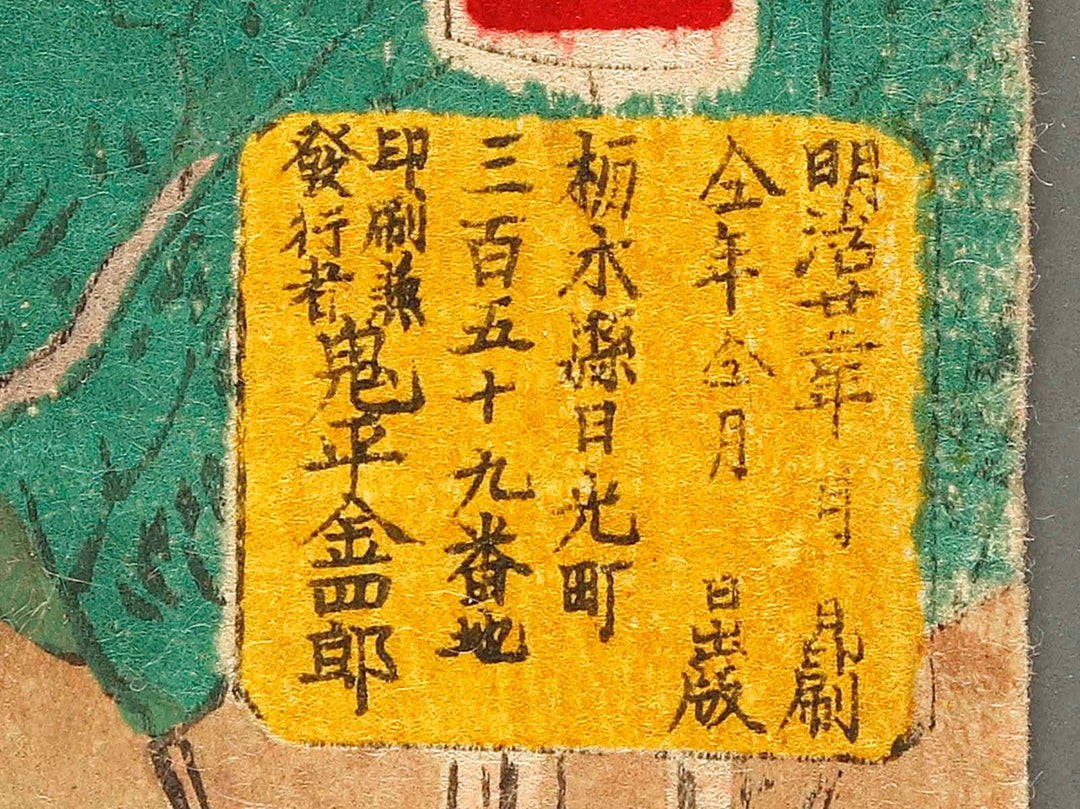 明治廿二年 月 日印刷
仝年仝月 日出版
栃木縣日光町
三百五十九番地
印刷兼
發行者
鬼平金四郎